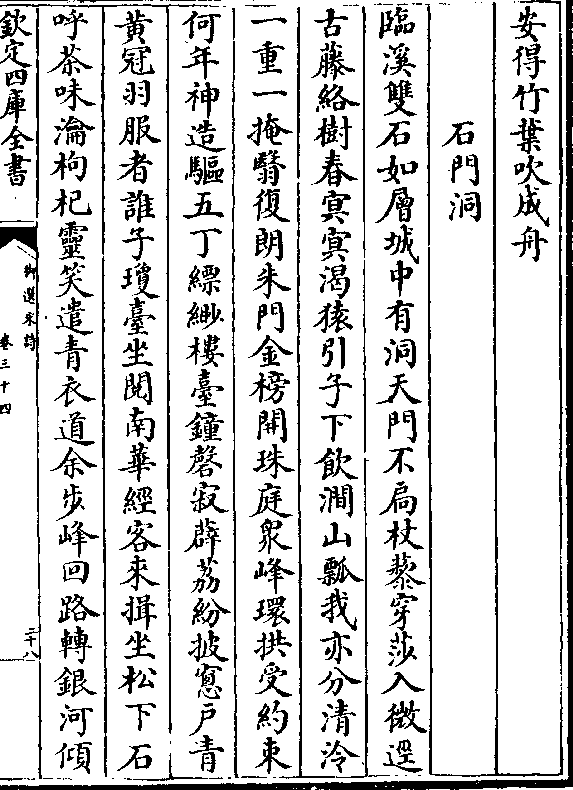 安得竹葉吹成舟
石門洞
臨溪雙石如層城中有洞天門不扃杖藜穿莎入微逕
古藤絡樹春㝠㝠渴猿引子下飲澗山瓢我亦分清泠
一重一掩翳復朗朱門金榜開珠庭衆峰環拱受約束
何年神造驅五丁縹緲樓臺鐘磬寂薜荔紛披窻戸青
黄冠羽服者誰子瓊臺坐閱南華經客來揖坐松下石
呼茶味瀹枸杞靈笑遣青衣道余步峰回路轉銀河傾
欽定四庫全書
御選宋詩
卷三十四
二十八